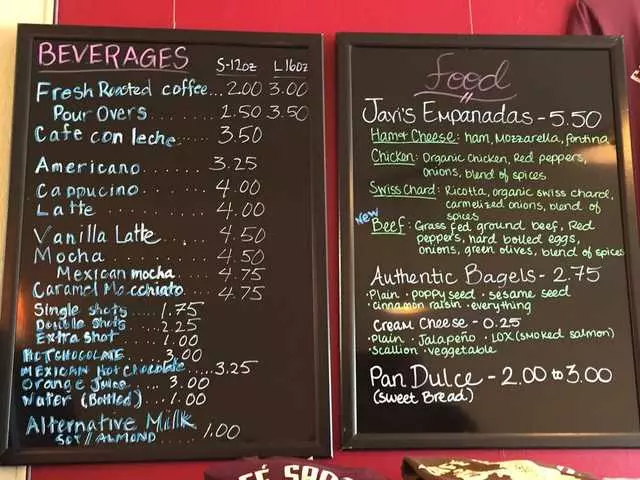 BEVERAGES S-12oz L 16oz
Fresh Roasted coffee... 2.00 3.00
Pour Overs ...... 2.50 3.50
Cafe con leche..... 3.50
Americano....... 3.25
Cappucino....... 4.00
Latte ......... 4.00
Vanilla Latte..... 4.50
Mocha ......... 4.50
Mexican mocha.... 4.75
Caramel Macchiato... 4.75
Single shots.... 1.75
Double shots... 2.25
Extra shot.... 1.00
HOT CHOCOLATE... 3.00
MEXICAN Hot Chocolate...3.25
Orange Juice... 3.00
Water (Bottled)... 1.00
Alternative Millk
SOY // ALMOND..... 1.00
Food
Javi's Empanadas - 5.50
Ham & Cheese: ham, Mozzarella, fontina
Chicken: Organic Chicken, Red peppers,
onions, blend of spices
Swiss Chard: Ricotta, organic swiss chard,
carmelized onions, blend of
spices
New
Beef: Grass fed ground beef, Red
peppers, hard boiled eggs,
onions, green olives, blend of spices
Authentic Bagels - 2.75
• Plain • poppy seed • sesame seed
• cinnamon raisin • everything
Cream Cheese - 0.25
• Plain • Jalapeño • LOX (smoked salmon)
• scallion • veggetable
Pan Dulce - 2.00 to 3.00
(Sweet Bread)